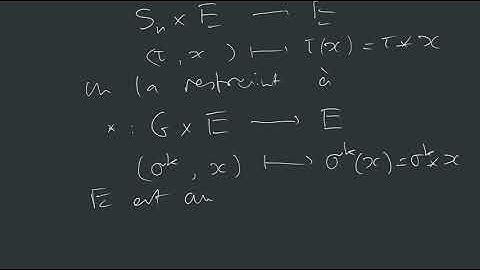 Sₙ × E ⟶ E
(τ, x) ⟼ τ(x) = τ * x
on la restreint à
* : G × E ⟶ E
(σᵏ, x) ⟼ σᵏ(x) = σᵏ * x
E est un